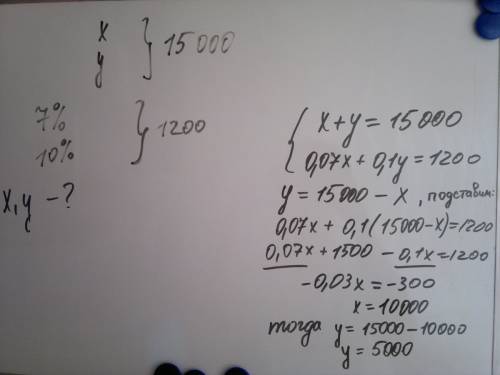 x
y } 15 000
7%
10% } 1200
x, y - ?
{ x + y = 15000
0,07x + 0,1y = 1200
y = 15000 - x , подставим:
0,07x + 0,1(15000-x)=1200
0,07x + 1500 - 0,1x = 1200
-0,03x = -300
x = 10000
тогда y = 15000 - 10000
y = 5000